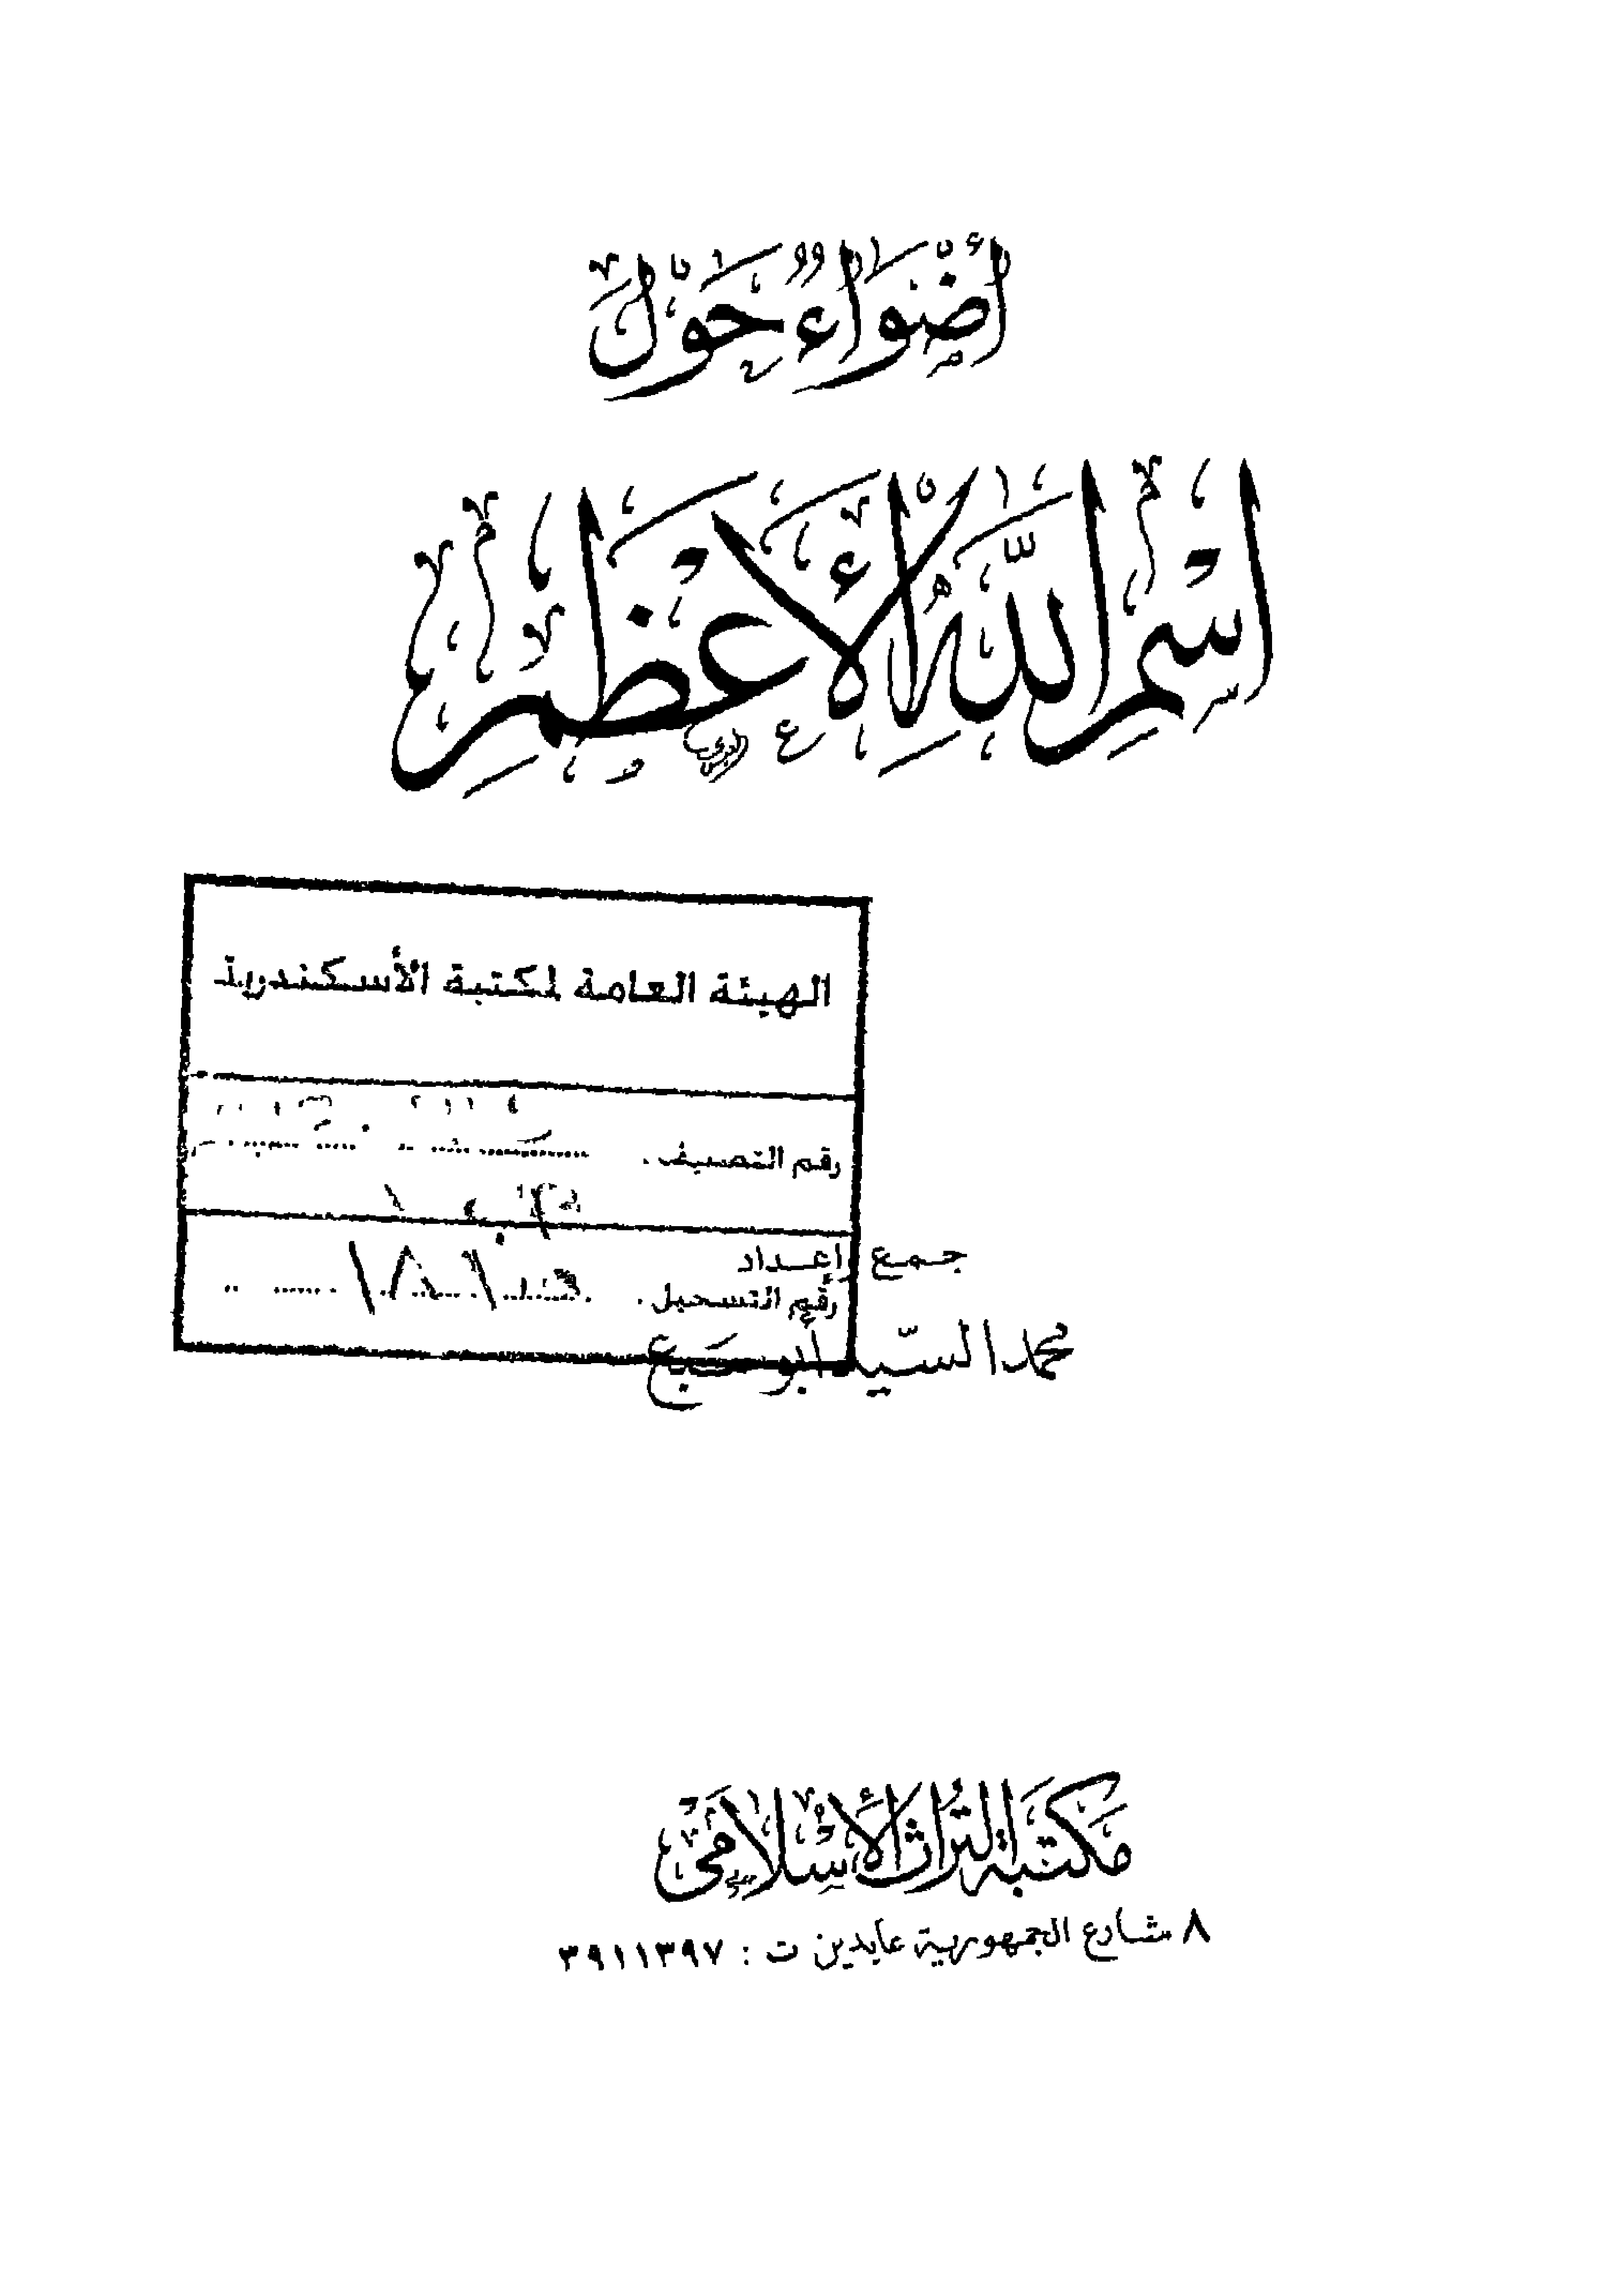 أضواء حول
اسم الله الأعظم
الهيئة العامة لمكتبة الأسكندرية
رقم التصنيف
جمع وإعداد
رقم التسجيل
محمد السيد أبو سبع
مكتبة التراث الإسلامي
٨ شارع الجمهورية عابدين ت : ٣٩١١٣٩٧